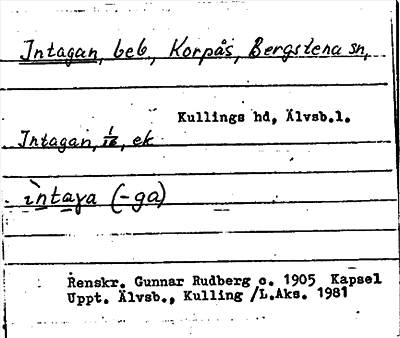 Intagan, beb., Korpås, Bergstena sn,
Kullings hd, Älvsb.l.
Intagan, 1/16, ek
ìntaγa (-ga)
Renskr. Gunnar Rudberg o. 1905 Kapsel
Uppt. Älvsb., Kulling /L.Aks. 1981